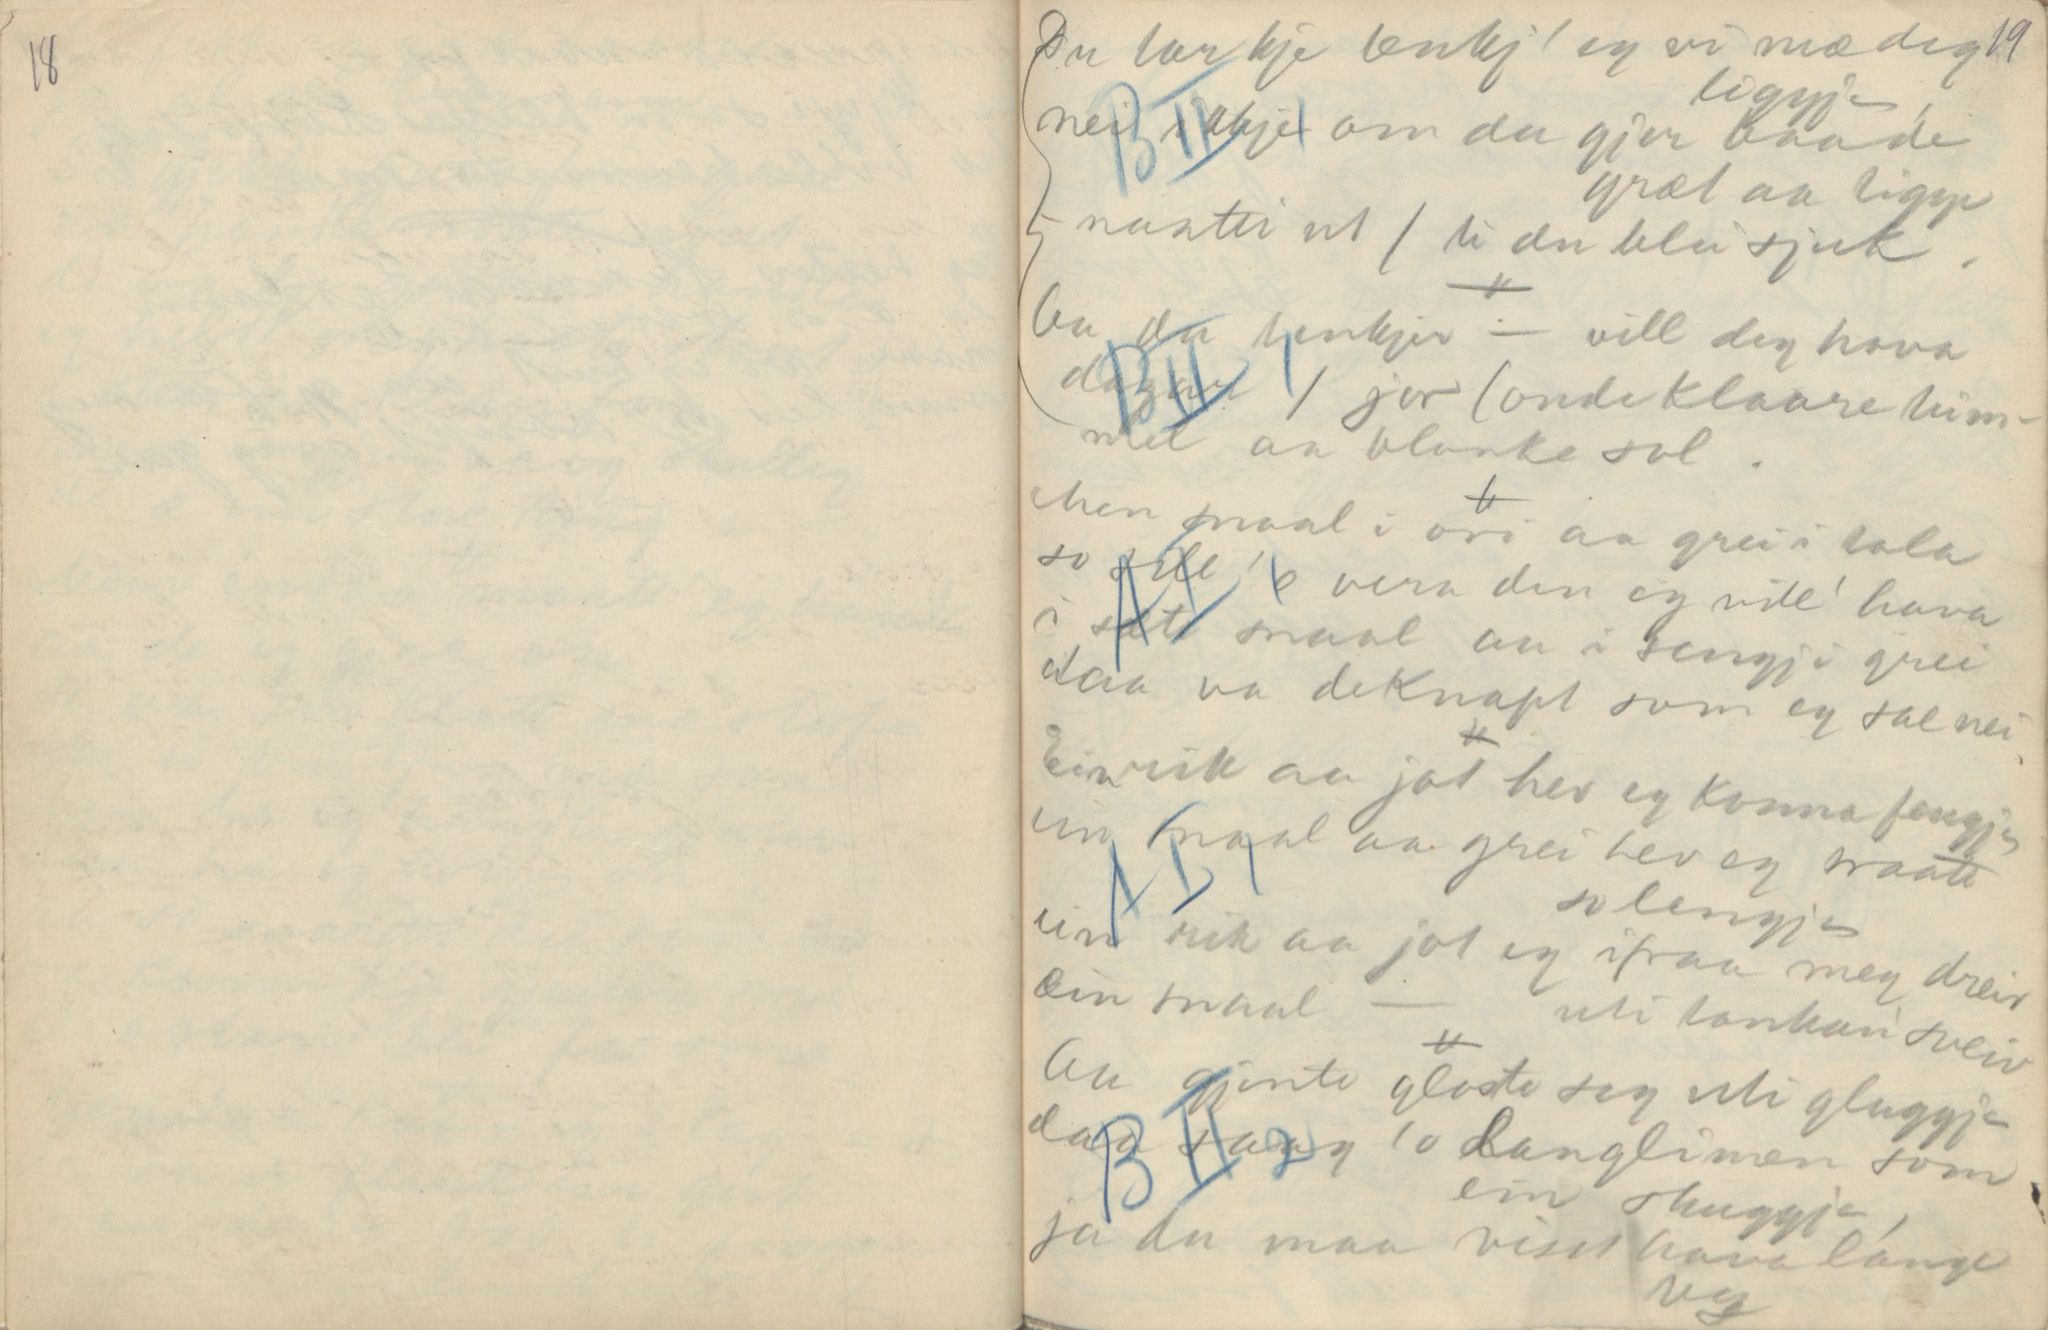 18
19
Du tar kje tenkj' eg vi mæ deg
liggja,
nei ikkje om du gjer baade
græt aa tigge
naatti ut / ti du blei sjuk.
Aa du tenkjer — vill deg hava
dagar / jor (onde klaare him-
mel aa blanke sol.
Men snaal i ori aa grei i tala
so ska 'o vera den eg vill' hava
i snaal aa i sengji grei
daa va de knapt som eg sae nei.
Ein rik aa jot hev eg konna fengje
ein snaal aa grei hev eg
so lengje
ein rik aa jot eg ifraa meg dreiv
ein snaal — uti tankan sveiv
Aa gjente gloste seg uti gluggje
daa saag 'o Langlimen som
ein skuggje,
ja du maa visst hava lange
veg
B II 1
B II 1
A I 1
A I 1
B II 2